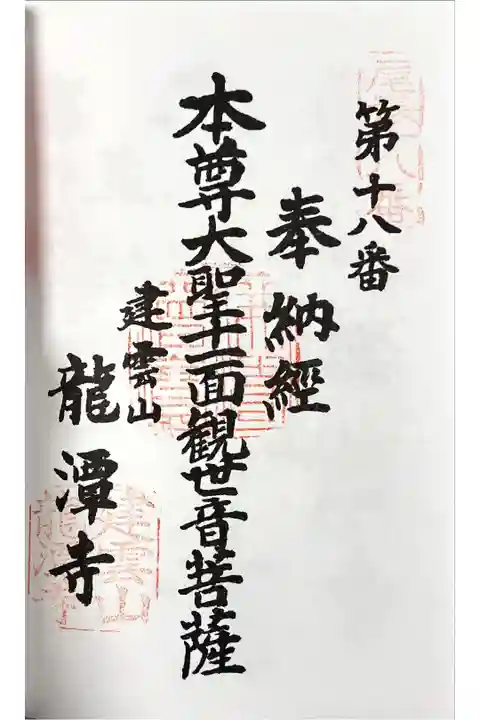 第十八番
奉納經
本尊大聖十一面観世音菩薩
建雲山
龍潭寺
建雲山